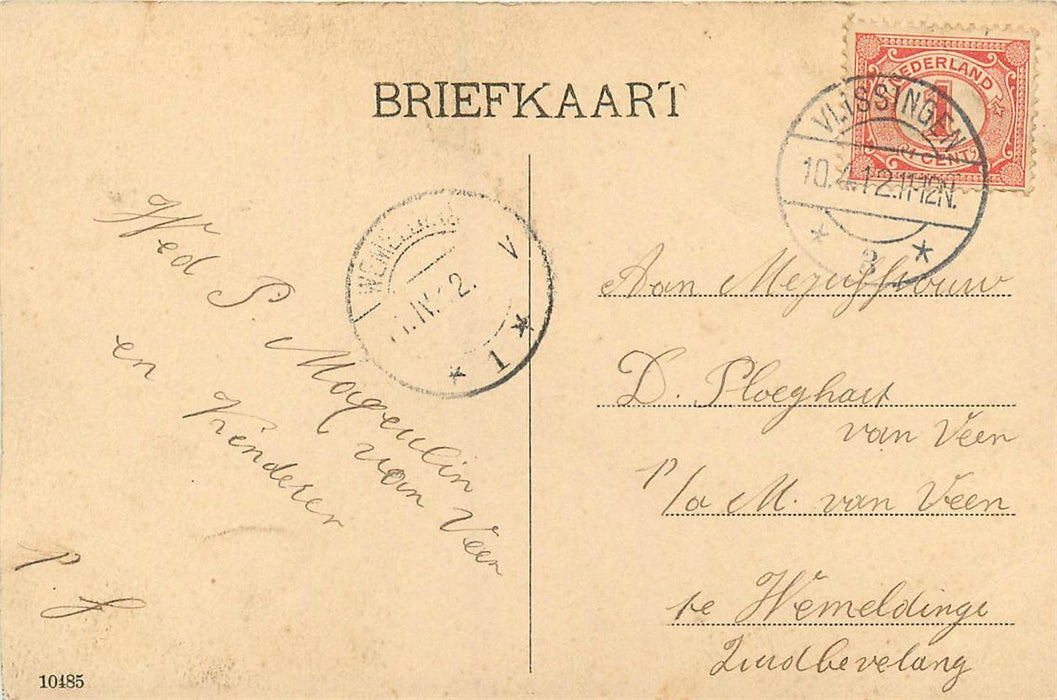 BRIEFKAART
NEDERLAND
1
CENT
VLISSINGEN
10.4.12.11-12N.
3
WEMELDINGE
V
IV.12.
1
Wed P. Magculin
van Veen
en Kinderen
P. f
Aan Mejuffrouw
D. Ploeghart
van Veen
p/a M. van Veen
te Wemeldinge
Zuidbevelang
10485